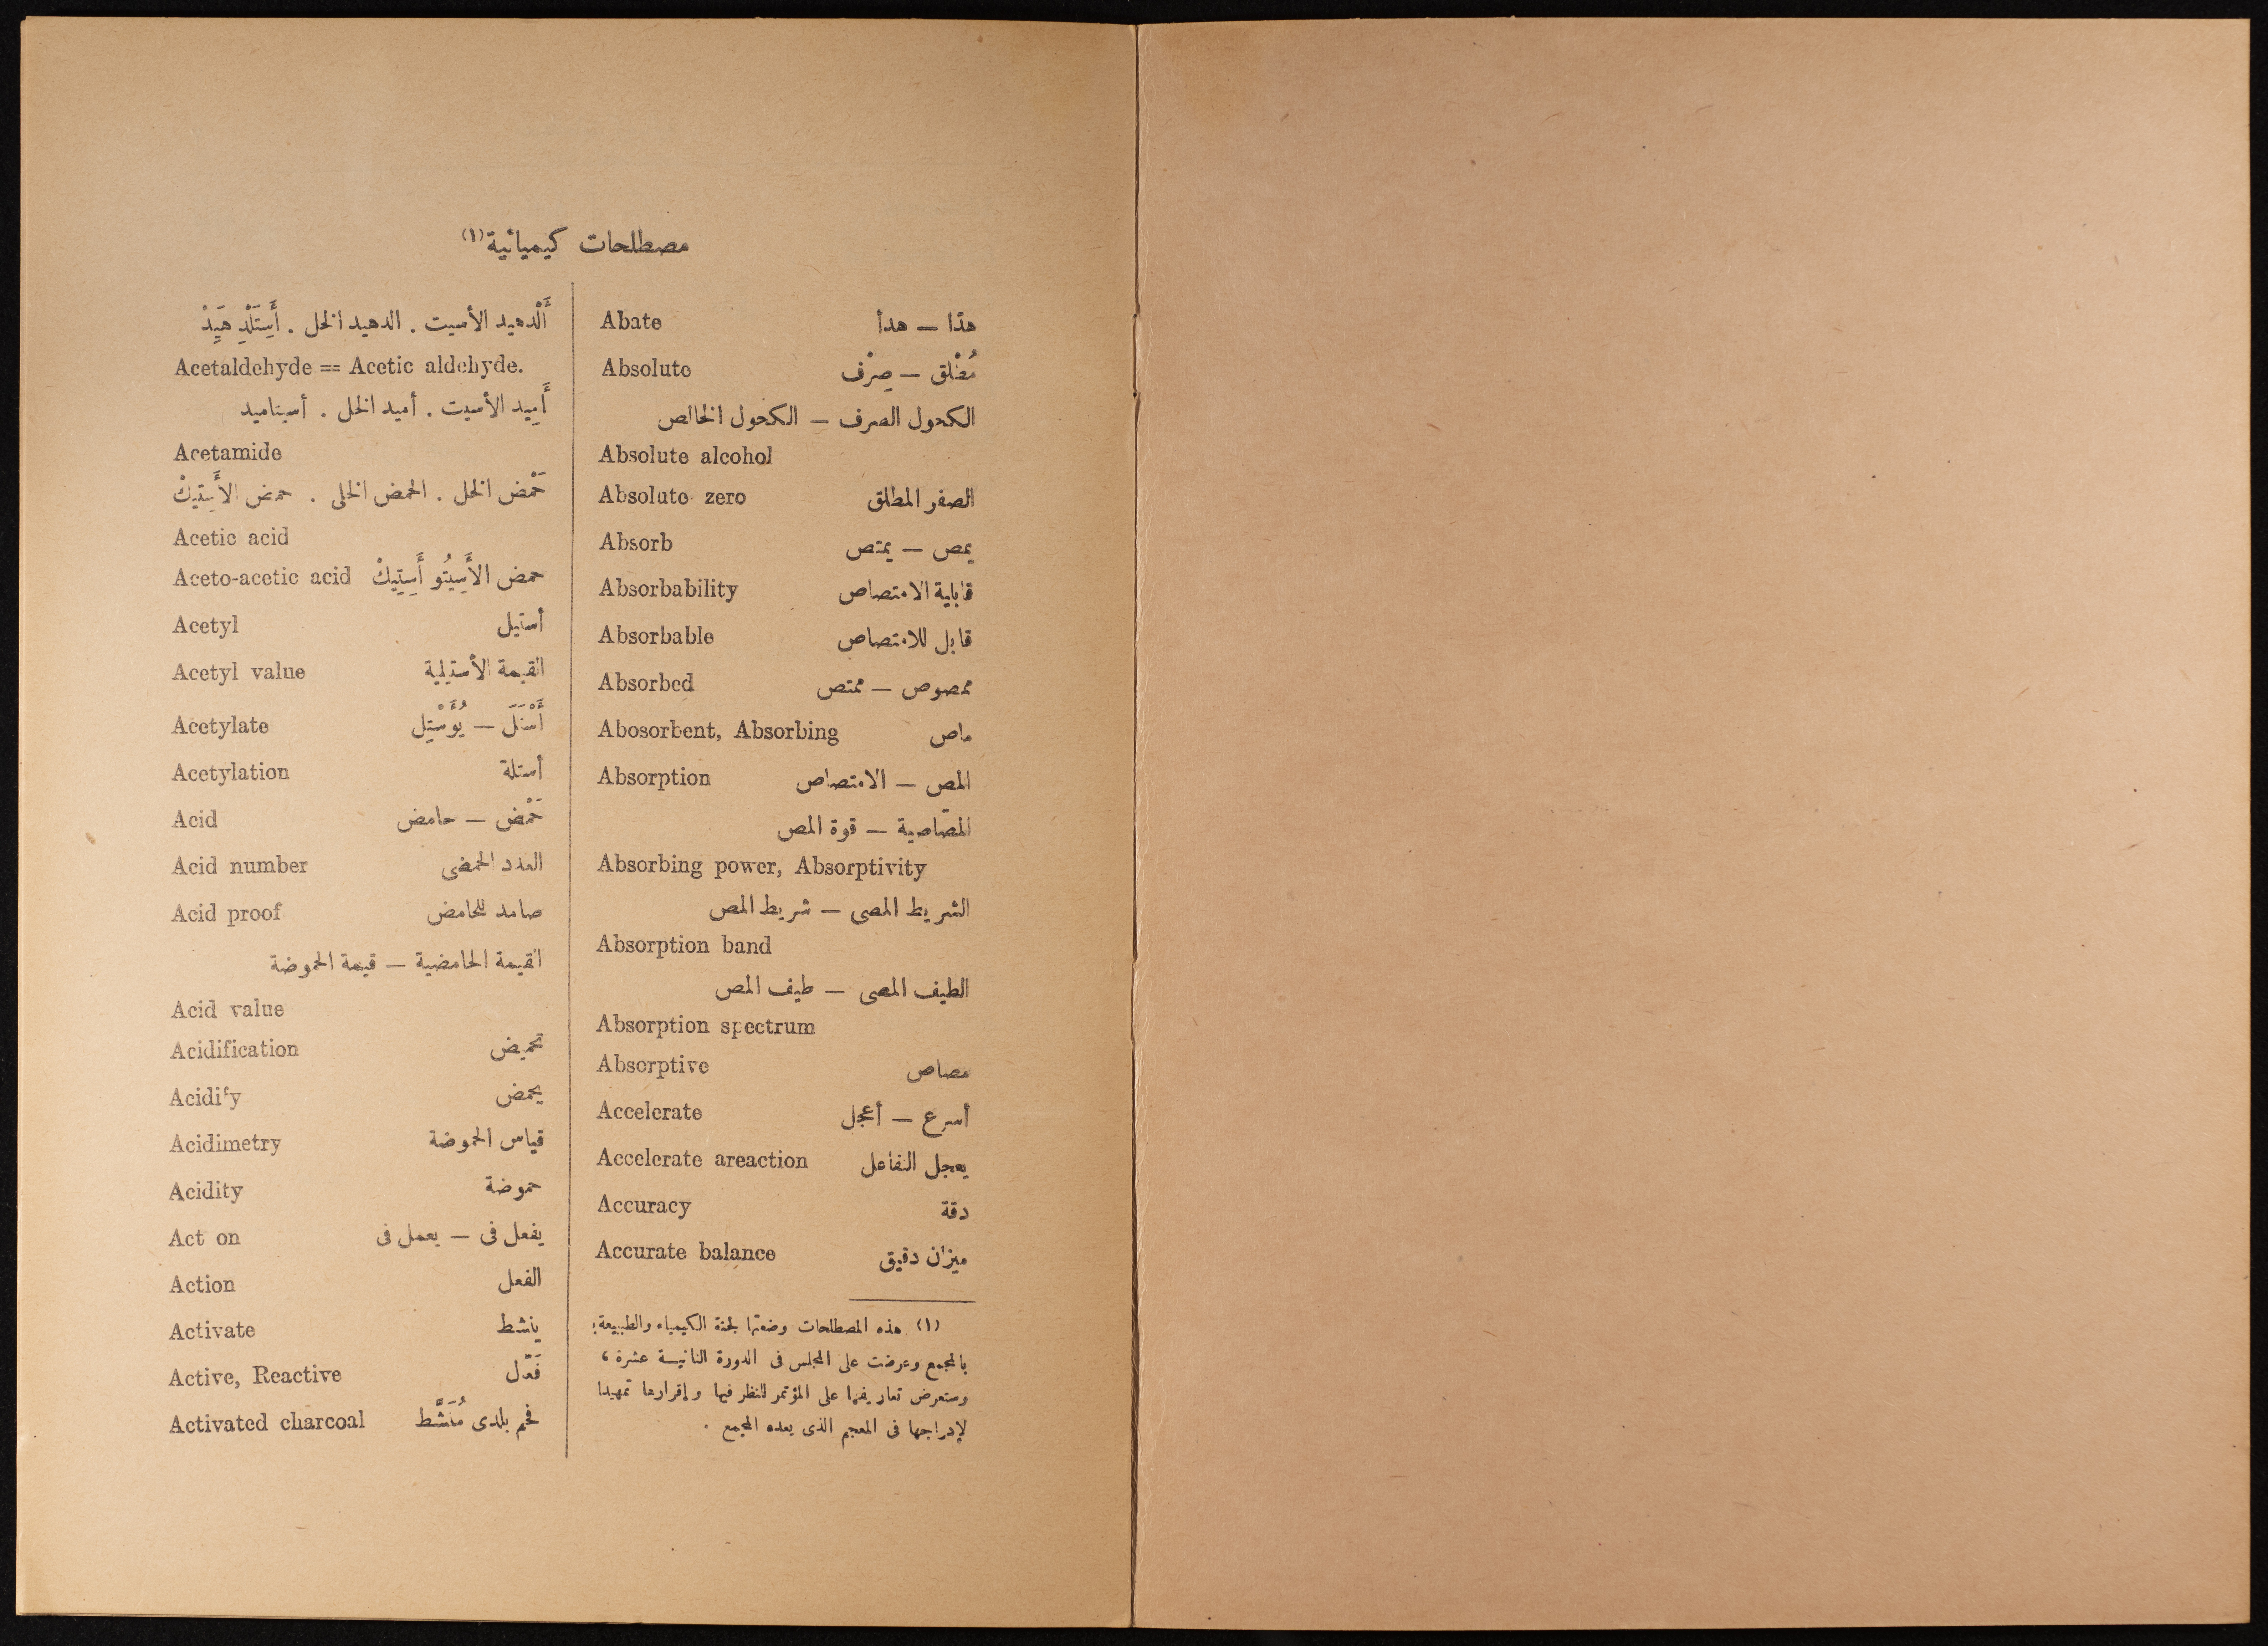 مصطلحات كيميائية(١)
Abate هدّأ — هدأ
Absolute مُطْلق — صِرْف
الكحول الصرف — الكحول الخالص
Absolute alcohol
Absolute zero الصفر المطلق
Absorb يمص — يمتص
Absorbability قابلية الامتصاص
Absorbable قابل للامتصاص
Absorbed ممصوص — ممتص
Abosorbent, Absorbing ماص
Absorption المص — الامتصاص
المصّاصية — قوة المص
Absorbing power, Absorptivity
الشريط المصى — شريط المص
Absorption band
الطيف المصى — طيف المص
Absorption spectrum
Absorptive مصاص
Accelerate أسرع — أعجل
Accelerate areaction يعجل التفاعل
Accuracy دقة
Accurate balance ميزان دقيق
(١) هذه المصطلحات وضعتها لجنة الكيمياء والطبيعة
بالمجمع وعرضت على المجلس فى الدورة الثانية عشرة ،
وستعرض تعاريفها على المؤتمر للنظر فيها وإقرارها تمهيدا
لإدراجها فى المعجم الذى يعده المجمع .
أَلْدهيد الأسيت . الدهيد الخل . أَسِتَلْدِهَيِدْ
Acetaldehyde = Acetic aldehyde.
أَمِيد الأسيت . أميد الخل . أسيتاميد
Acetamide
حَمْض الخل . الحمض الخلى . حمض الأَسِتِيكْ
Acetic acid
Aceto-acetic acid حمض الأَسِيتُو أَسِتِيكْ
Acetyl أستيل
Acetyl value القيمة الأستيلية
Acetylate أَسْتَلَ — يُؤَسْتِل
Acetylation أستلة
Acid حَمْض — حامض
Acid number العدد الحمضى
Acid proof صامد للحامض
القيمة الحامضية — قيمة الحموضة
Acid value
Acidification تحميض
Acidify يحمض
Acidimetry قياس الحموضة
Acidity حموضة
Act on يفعل فى — يعمل فى
Action الفعل
Activate ينشط
Active, Reactive فَعّال
Activated charcoal فحم بلدى مُنَشَّط